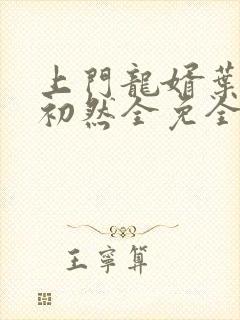 上門龍婿葉
初然全免全
王寧算